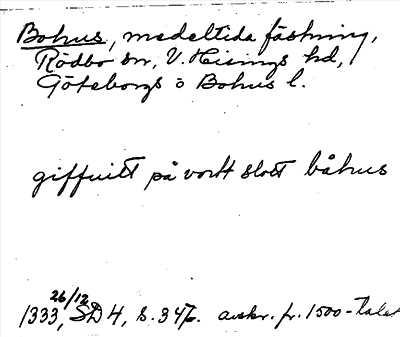 Bohus, medeltida fästning,
Rödbo sn, V. Hisings hd,
Göteborgs o Bohus l.
giffuitt på vortt slott båhus
26/12
1333, SD 4, s. 347. avskr. fr. 1500-talet